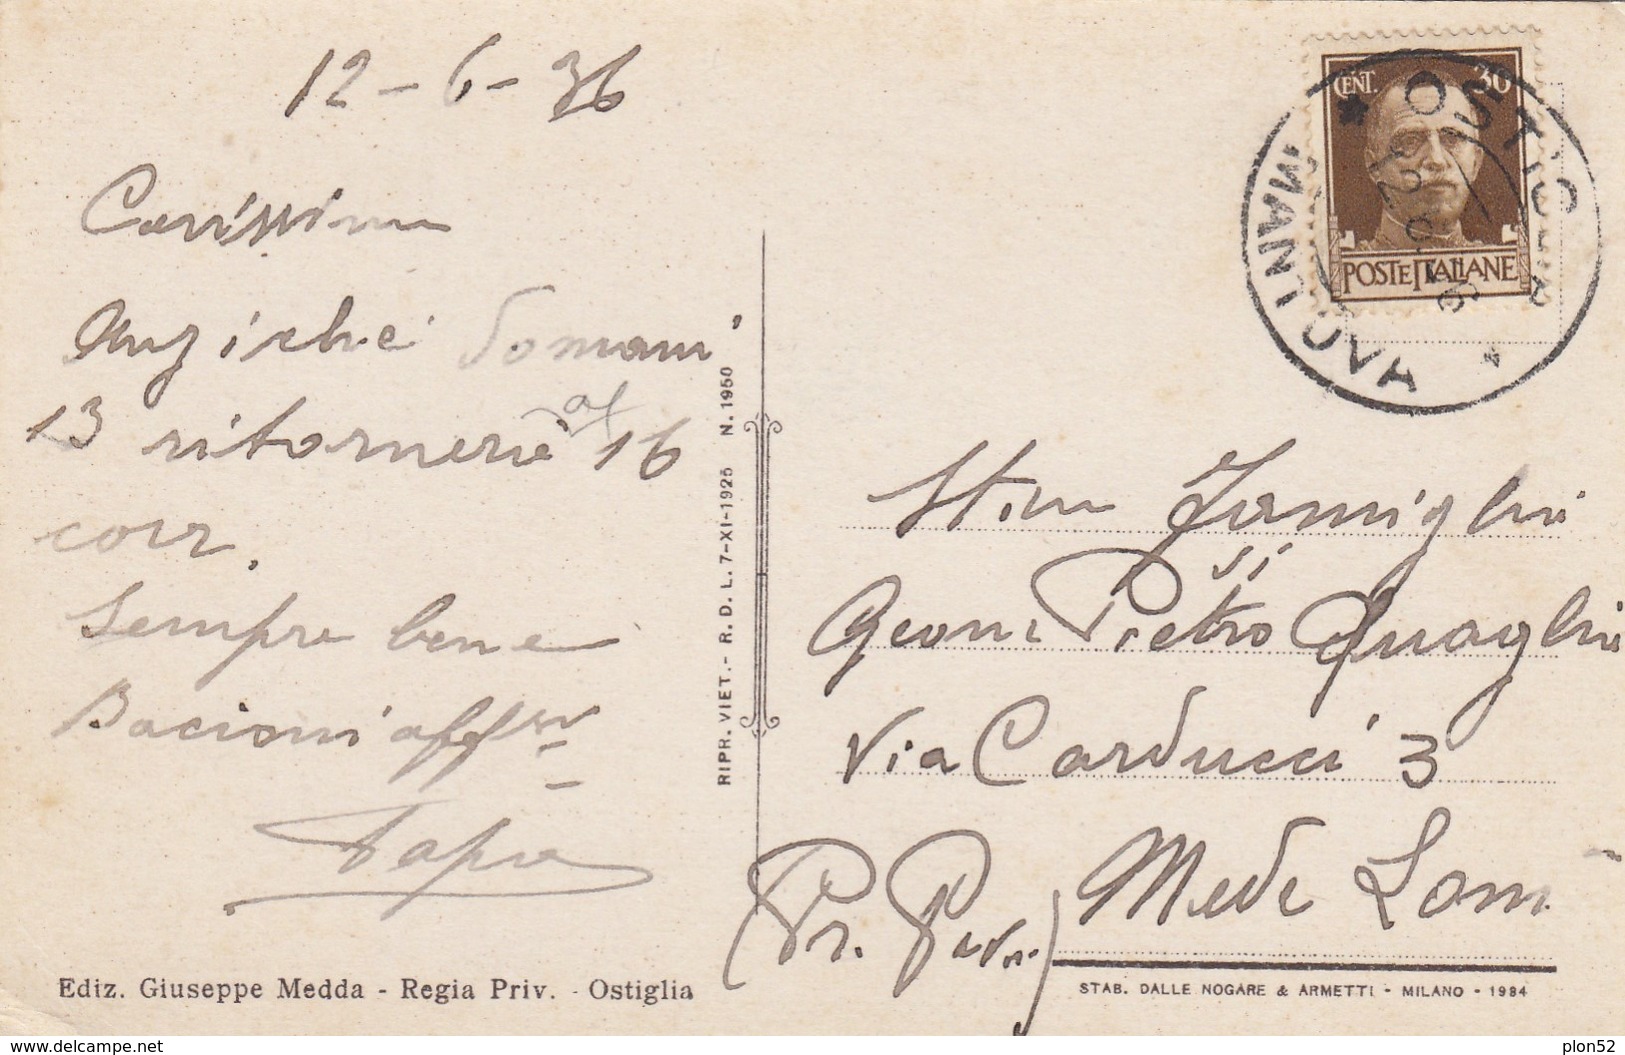 12-6-36
Carissimi
Anziché domani
13 ritornerò al 16
corr.
Sempre bene
Bacioni aff.mi
Papà
Ediz. Giuseppe Medda - Regia Priv. - Ostiglia
RIPR. VIET. - R. D. L. 7-XI-1925 N. 1950
CENT. 30
POSTE ITALIANE
OSTIGLIA
MANTOVA
12.6.36
Famiglia
Geom. Pietro Quaglia
Via Carducci 3
Mede Lom.
(Pr. Pavia)
STAB. DALLE NOGARE & ARMETTI - MILANO - 1934
www.delcampe.net
plon52